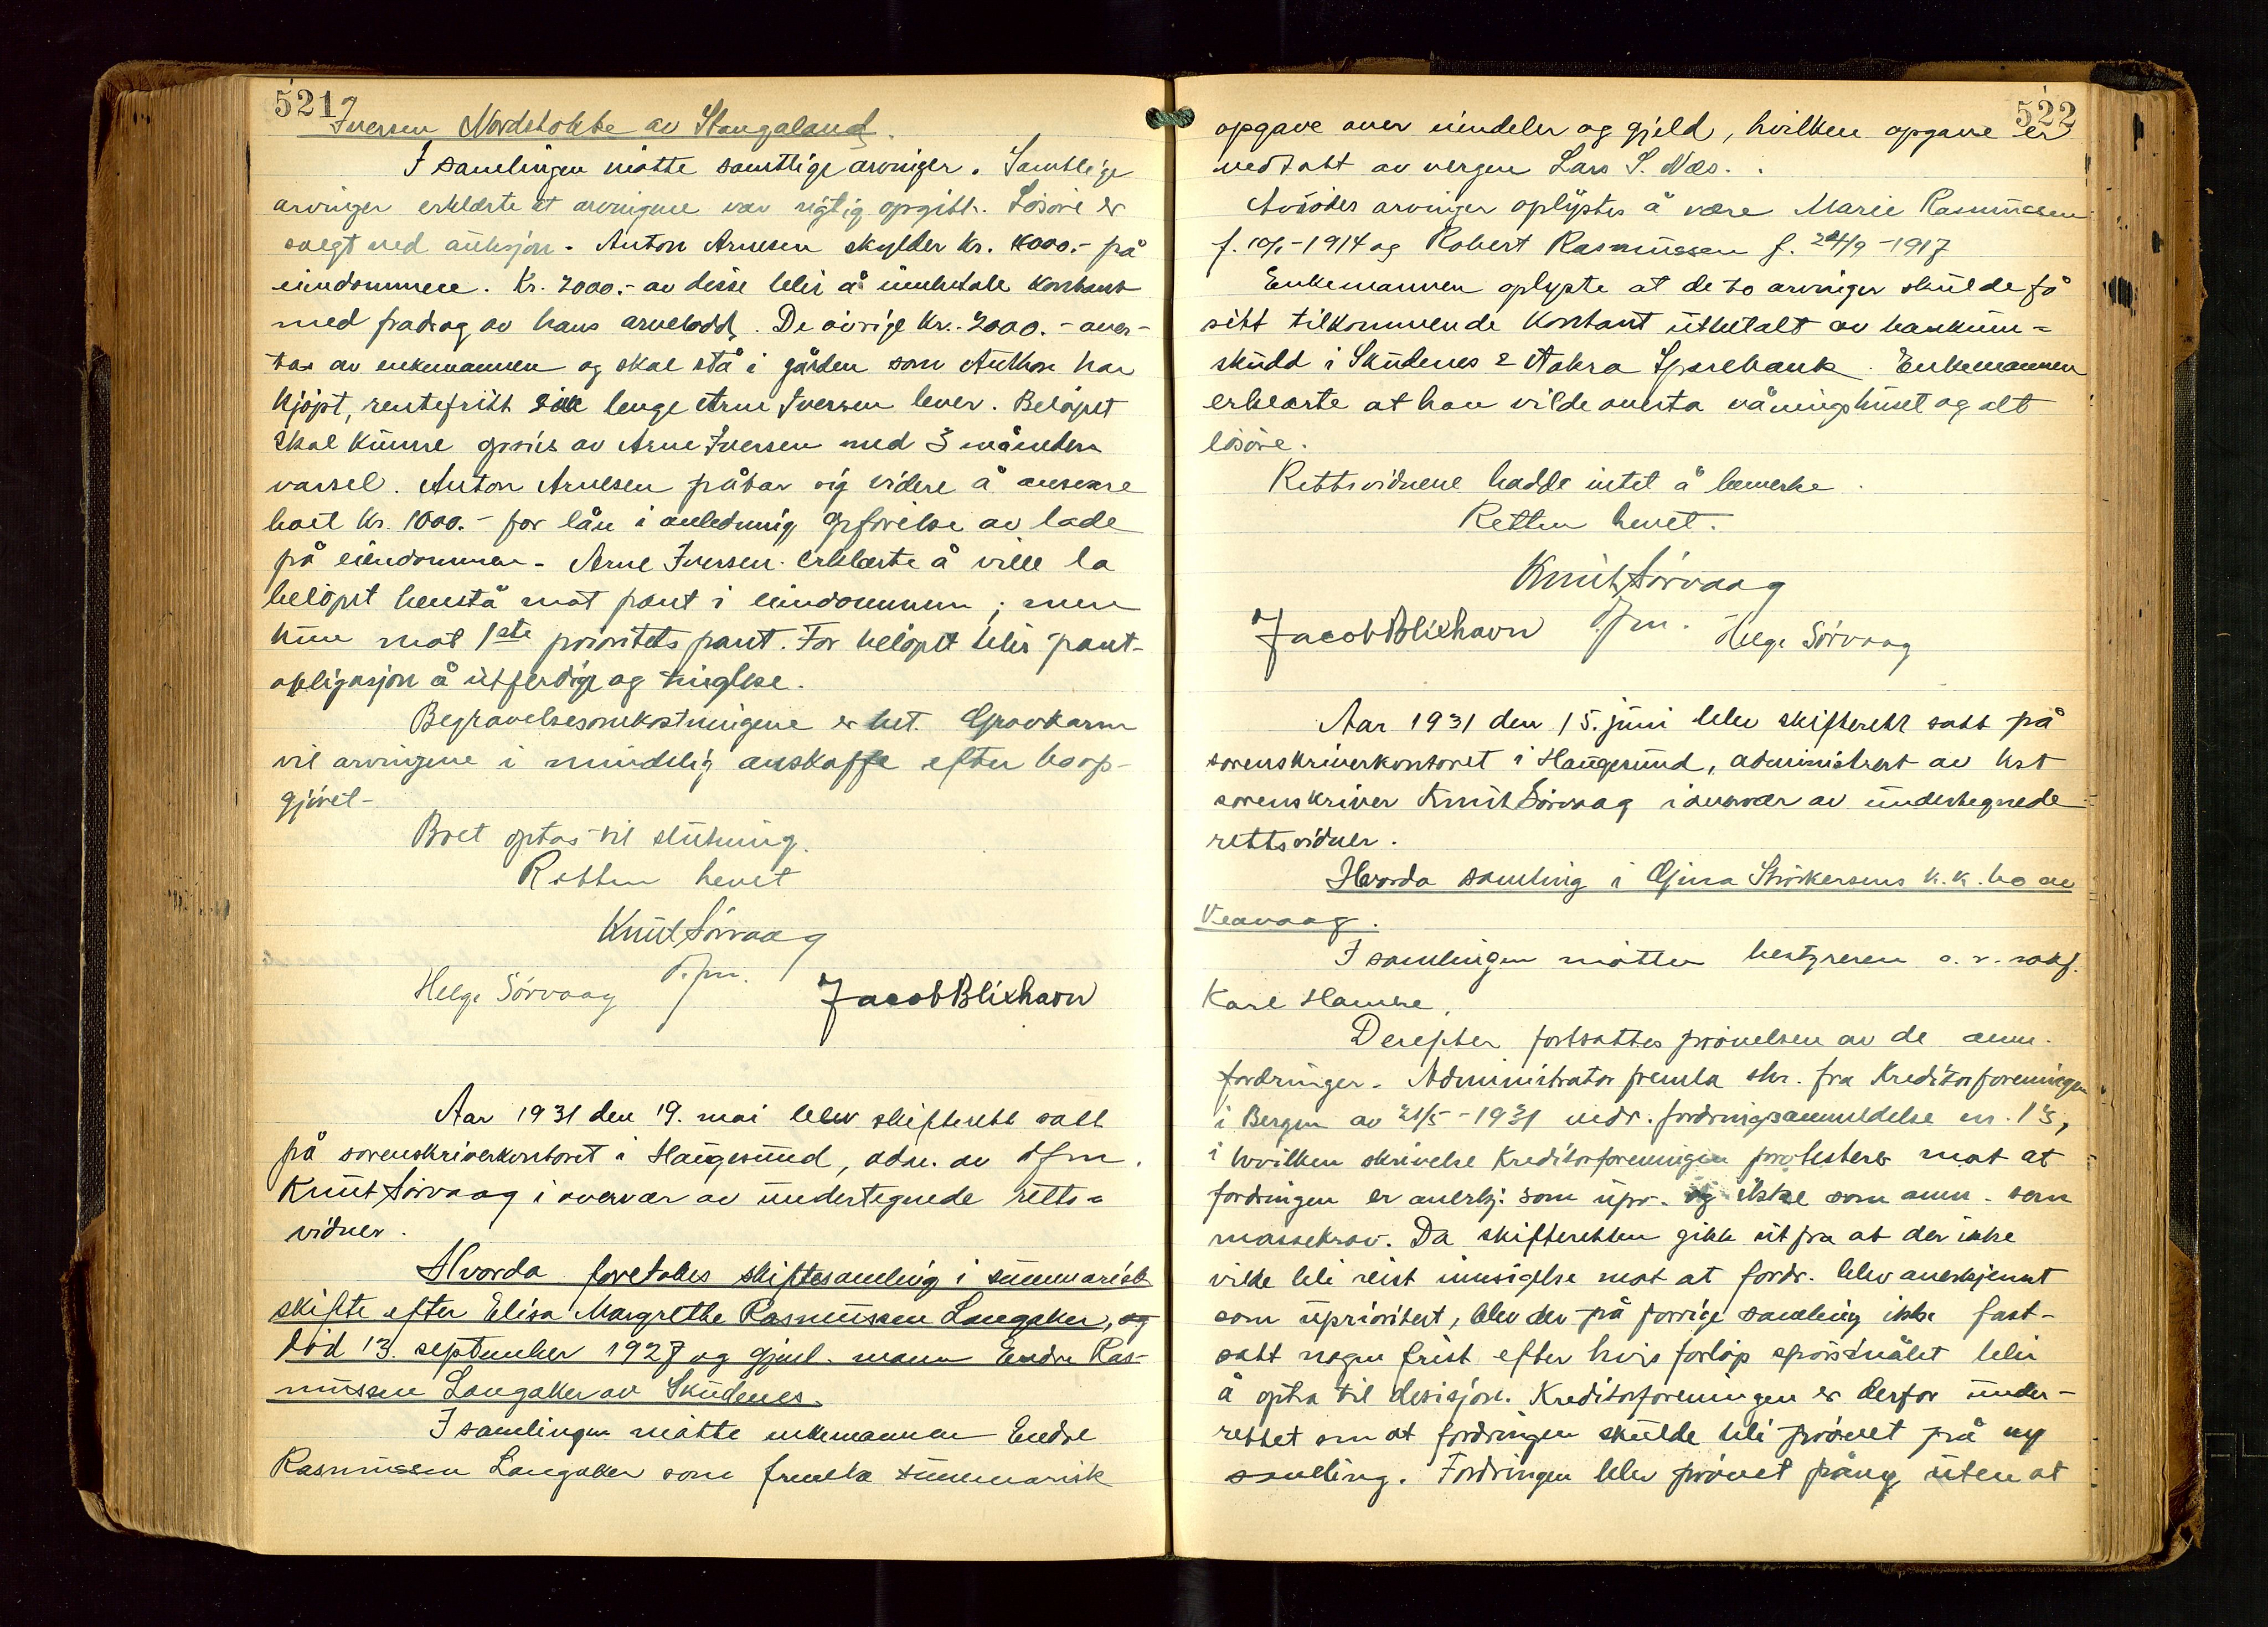 521
Iversen Nordstokke av Stangaland.
I samlingen møtte samtlige arvinger. Samtlige
arvinger erklærte at arvingene var rigtig opgitt. Løsøre er
solgt ved auksjon. Anton Arnesen skylder kr. 4000.- på
eiendommen. Kr. 2000.- av disse blir å innbetale kontant
med fradrag av hans arvelodd. De øvrige kr. 2000.- over-
tas av enkemannen og skal stå i gården som Anthon har
kjøpt, rentefritt så lenge Arne Iversen lever. Beløpet
skal kunne opsies av Arne Iversen med 3 måneders
varsel. Anton Arnesen påtar sig videre å ansvare
boet kr. 1000.- for lån i anledning opførelse av lade
på eiendommen. Arne Iversen erklærte å ville la
beløpet henstå mot pant i eiendommen, men
kun mot 1ste prioritets pant. For beløpet blir pant-
obligasjon å utferdige og tinglese.
Begravelsesomkostningene er bet. Gravkarm
vil arvingene i mindelig anskaffe efter boop-
gjøret-
Boet optas til slutning.
Retten hevet
Knut Sørvaag
d.fm.
Helge Sørvaag Jacob Blixhavn
Aar 1931 den 19. mai blev skifterett satt
på sorenskriverkontoret i Haugesund, adm. av dfm.
Knut Sørvaag i overvær av undertegnede retts-
vidner.
Hvorda foretokes skiftesamling i summarisk
skifte efter Elisa Margrethe Rasmussen Langaker, og
død 13. september 1927 og gjenl. mann Endre Ras-
mussen Langaker av Skudenes.
I samlingen møtte enkemannen Endre
Rasmussen Langaker som fremla summarisk
522
opgave over eiendeler og gjeld, hvilken opgave er
vedtatt av vergen Lars S. Næs.
Avdødes arvinger oplystes å være Marie Rasmussen
f. 10/1-1914 og Robert Rasmussen f. 24/9-1917
Enkemannen oplyste at de to arvinger skulde få
sitt tilkommende kontant utbetalt av bankinn-
skudd i Skudenes & Aakra Sparebank. Enkemannen
erklærte at han vilde overta våningshuset og alt
løsøre.
Rettsvidnene hadde intet å bemerke.
Retten hevet.
Knut Sørvaag
d.fm.
Jacob Blixhavn Helge Sørvaag
Aar 1931 den 15. juni blev skifterett satt på
sorenskriverkontoret i Haugesund, administrert av kst
sorenskriver Knut Sørvaag i overvær av undertegnede
rettsvidner.
Hvorda samling i Gina Størkersens k.k. bo av
Veavaag.
I samlingen møtte bestyreren o.r.sakf.
Karl Hamre.
Derefter fortsattes prøvelsen av de anm.
fordringer. Administrator fremla skr. fra Kreditorforeningen
i Bergen av 21/5-1931 vedr. fordringsanmeldelse nr. 13,
i hvilken skrivelse Kreditorforeningen protesterer mot at
fordringen er anerkj. som upr. og ikke som anm. som
massekrav. Da skifteretten gikk ut fra at der ikke
vilde bli reist innsigelse mot at fordr. blev anerkjennt
som uprioritert, blev der på forrige samling ikke fast-
satt nogen frist efter hvis forløp spørsmålet blir
å opta til desisjon. Kreditorforeningen er derfor under-
rettet om at fordringen skulde bli prøvet på ny
samling. Fordringen blev prøvet påny uten at